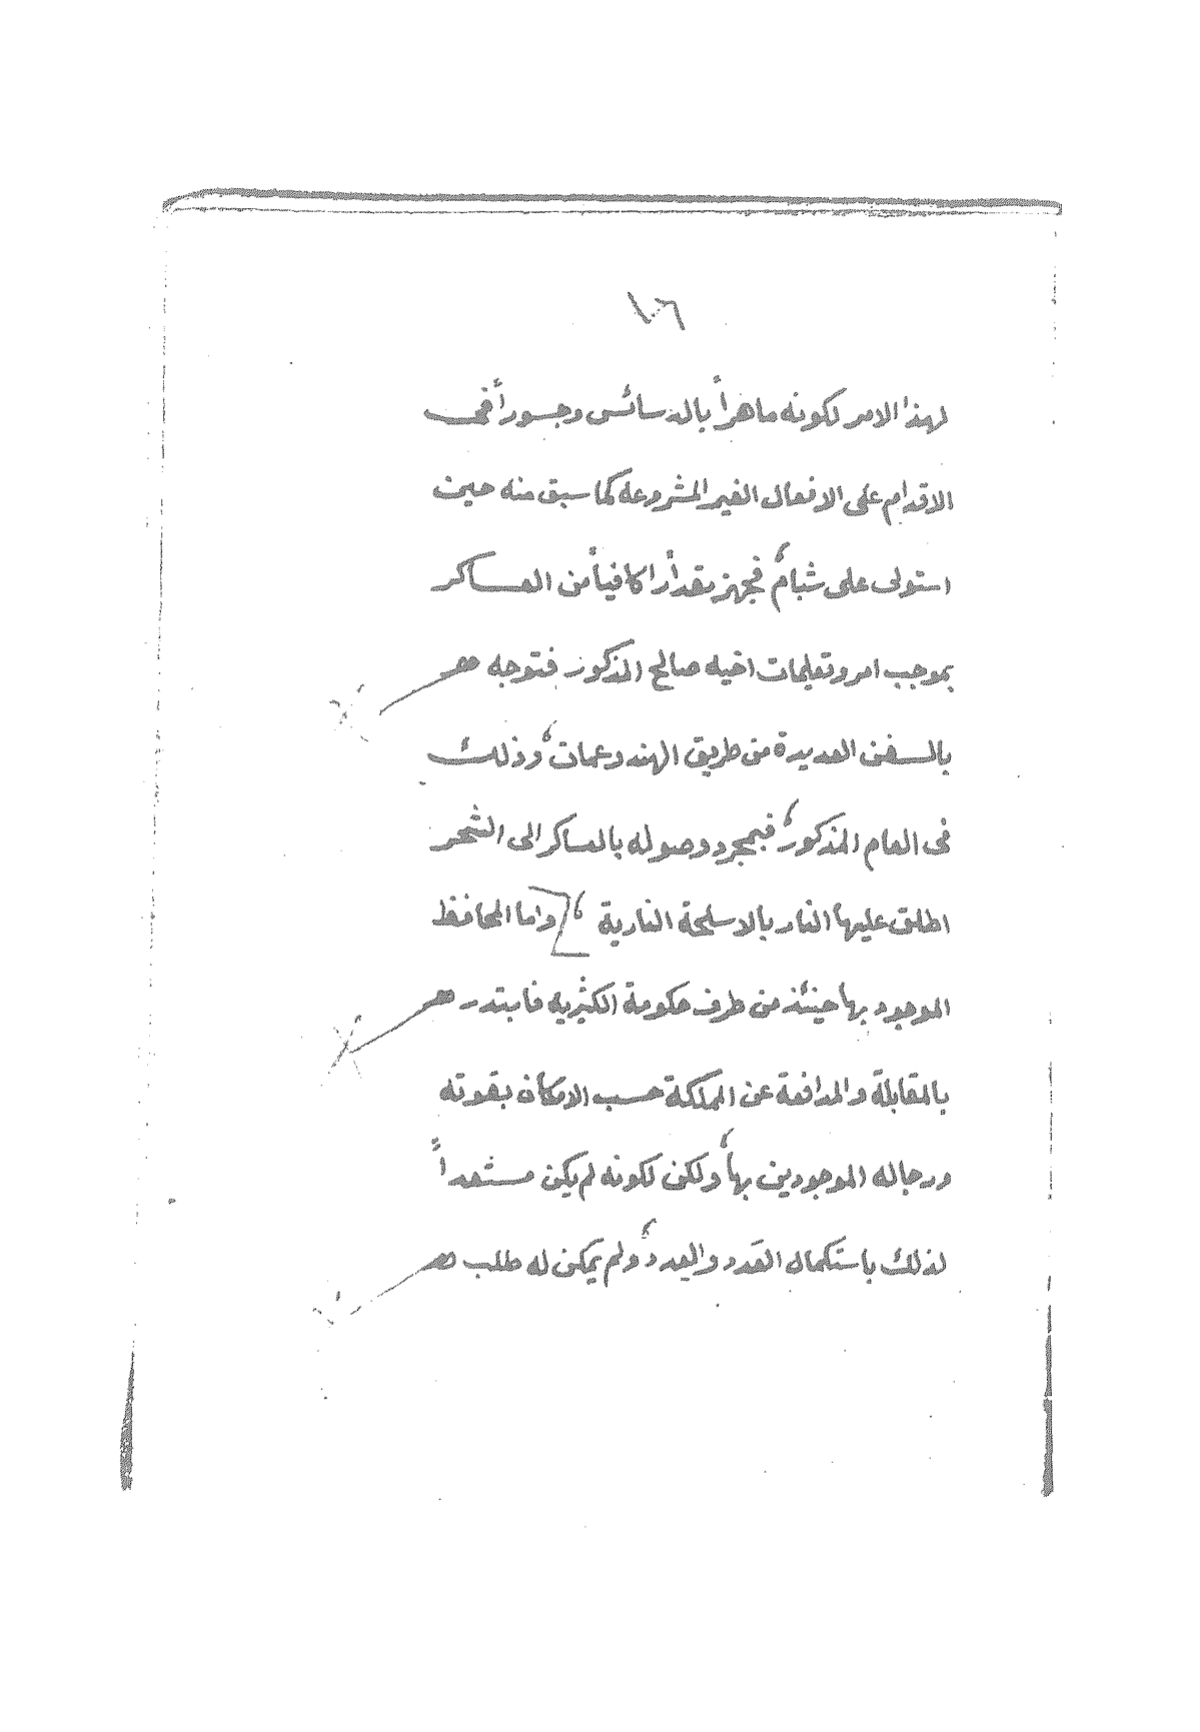 ١٠٦
لهذا الامر لكونه ماهراً بالدسائس وجسوراً في
الاقدام على الافعال الغير المشروعه كما سبق منه حين
استولى على شبام، فجهز مقداراً كافياً من العساكر
بموجب امر وتعليمات اخيه صالح المذكور فتوجه
بالسفن العديدة من طريق الهند وعمان، وذلك
في العام المذكور، فبمجرد وصوله بالعساكر الى الشحر
اطلق عليها النار بالاسلحة النارية، واما المحافظ
الموجود بها حينئذ من طرف حكومة الكثيريه فابتدر
بالمقابلة والمدافعة عن المملكة حسب الامكان بقوته
ورجاله الموجودين بها، ولكن لكونه لم يكن مستعداً
لذلك باستكمال العَدد والعِدد، ولم يمكن له طلب